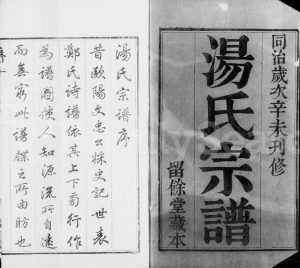 同治歲次辛未刊修
湯氏宗譜
留餘堂藏本
湯氏宗譜序
昔歐陽文忠公採史記世表
鄭氏詩譜依其上下旁行作
為譜圖俾人知源流所自遠
而無窮此譜牒之所由昉也